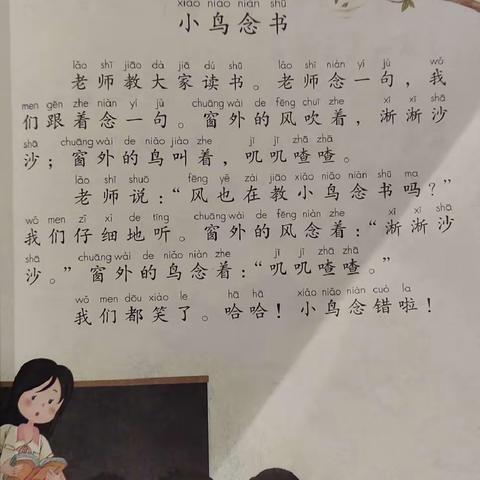 xiǎo niǎo niàn shū
小鸟念书
lǎo shī jiāo dà jiā dú shū lǎo shī niàn yí jù wǒ
老师教大家读书。老师念一句，我
men gēn zhe niàn yí jù chuāng wài de fēng chuī zhe xī xī shā
们跟着念一句。窗外的风吹着，淅淅沙
shā chuāng wài de niǎo jiào zhe jī jī zhā zhā
沙；窗外的鸟叫着，叽叽喳喳。
lǎo shī shuō fēng yě zài jiāo xiǎo niǎo niàn shū ma
老师说：“风也在教小鸟念书吗？”
wǒ men zǐ xì de tīng chuāng wài de fēng niàn zhe xī xī shā
我们仔细地听。窗外的风念着：“淅淅沙
shā chuāng wài de niǎo niàn zhe jī jī zhā zhā
沙。”窗外的鸟念着：“叽叽喳喳。”
wǒ men dōu xiào le hā hā xiǎo niǎo niàn cuò la
我们都笑了。哈哈！小鸟念错啦！